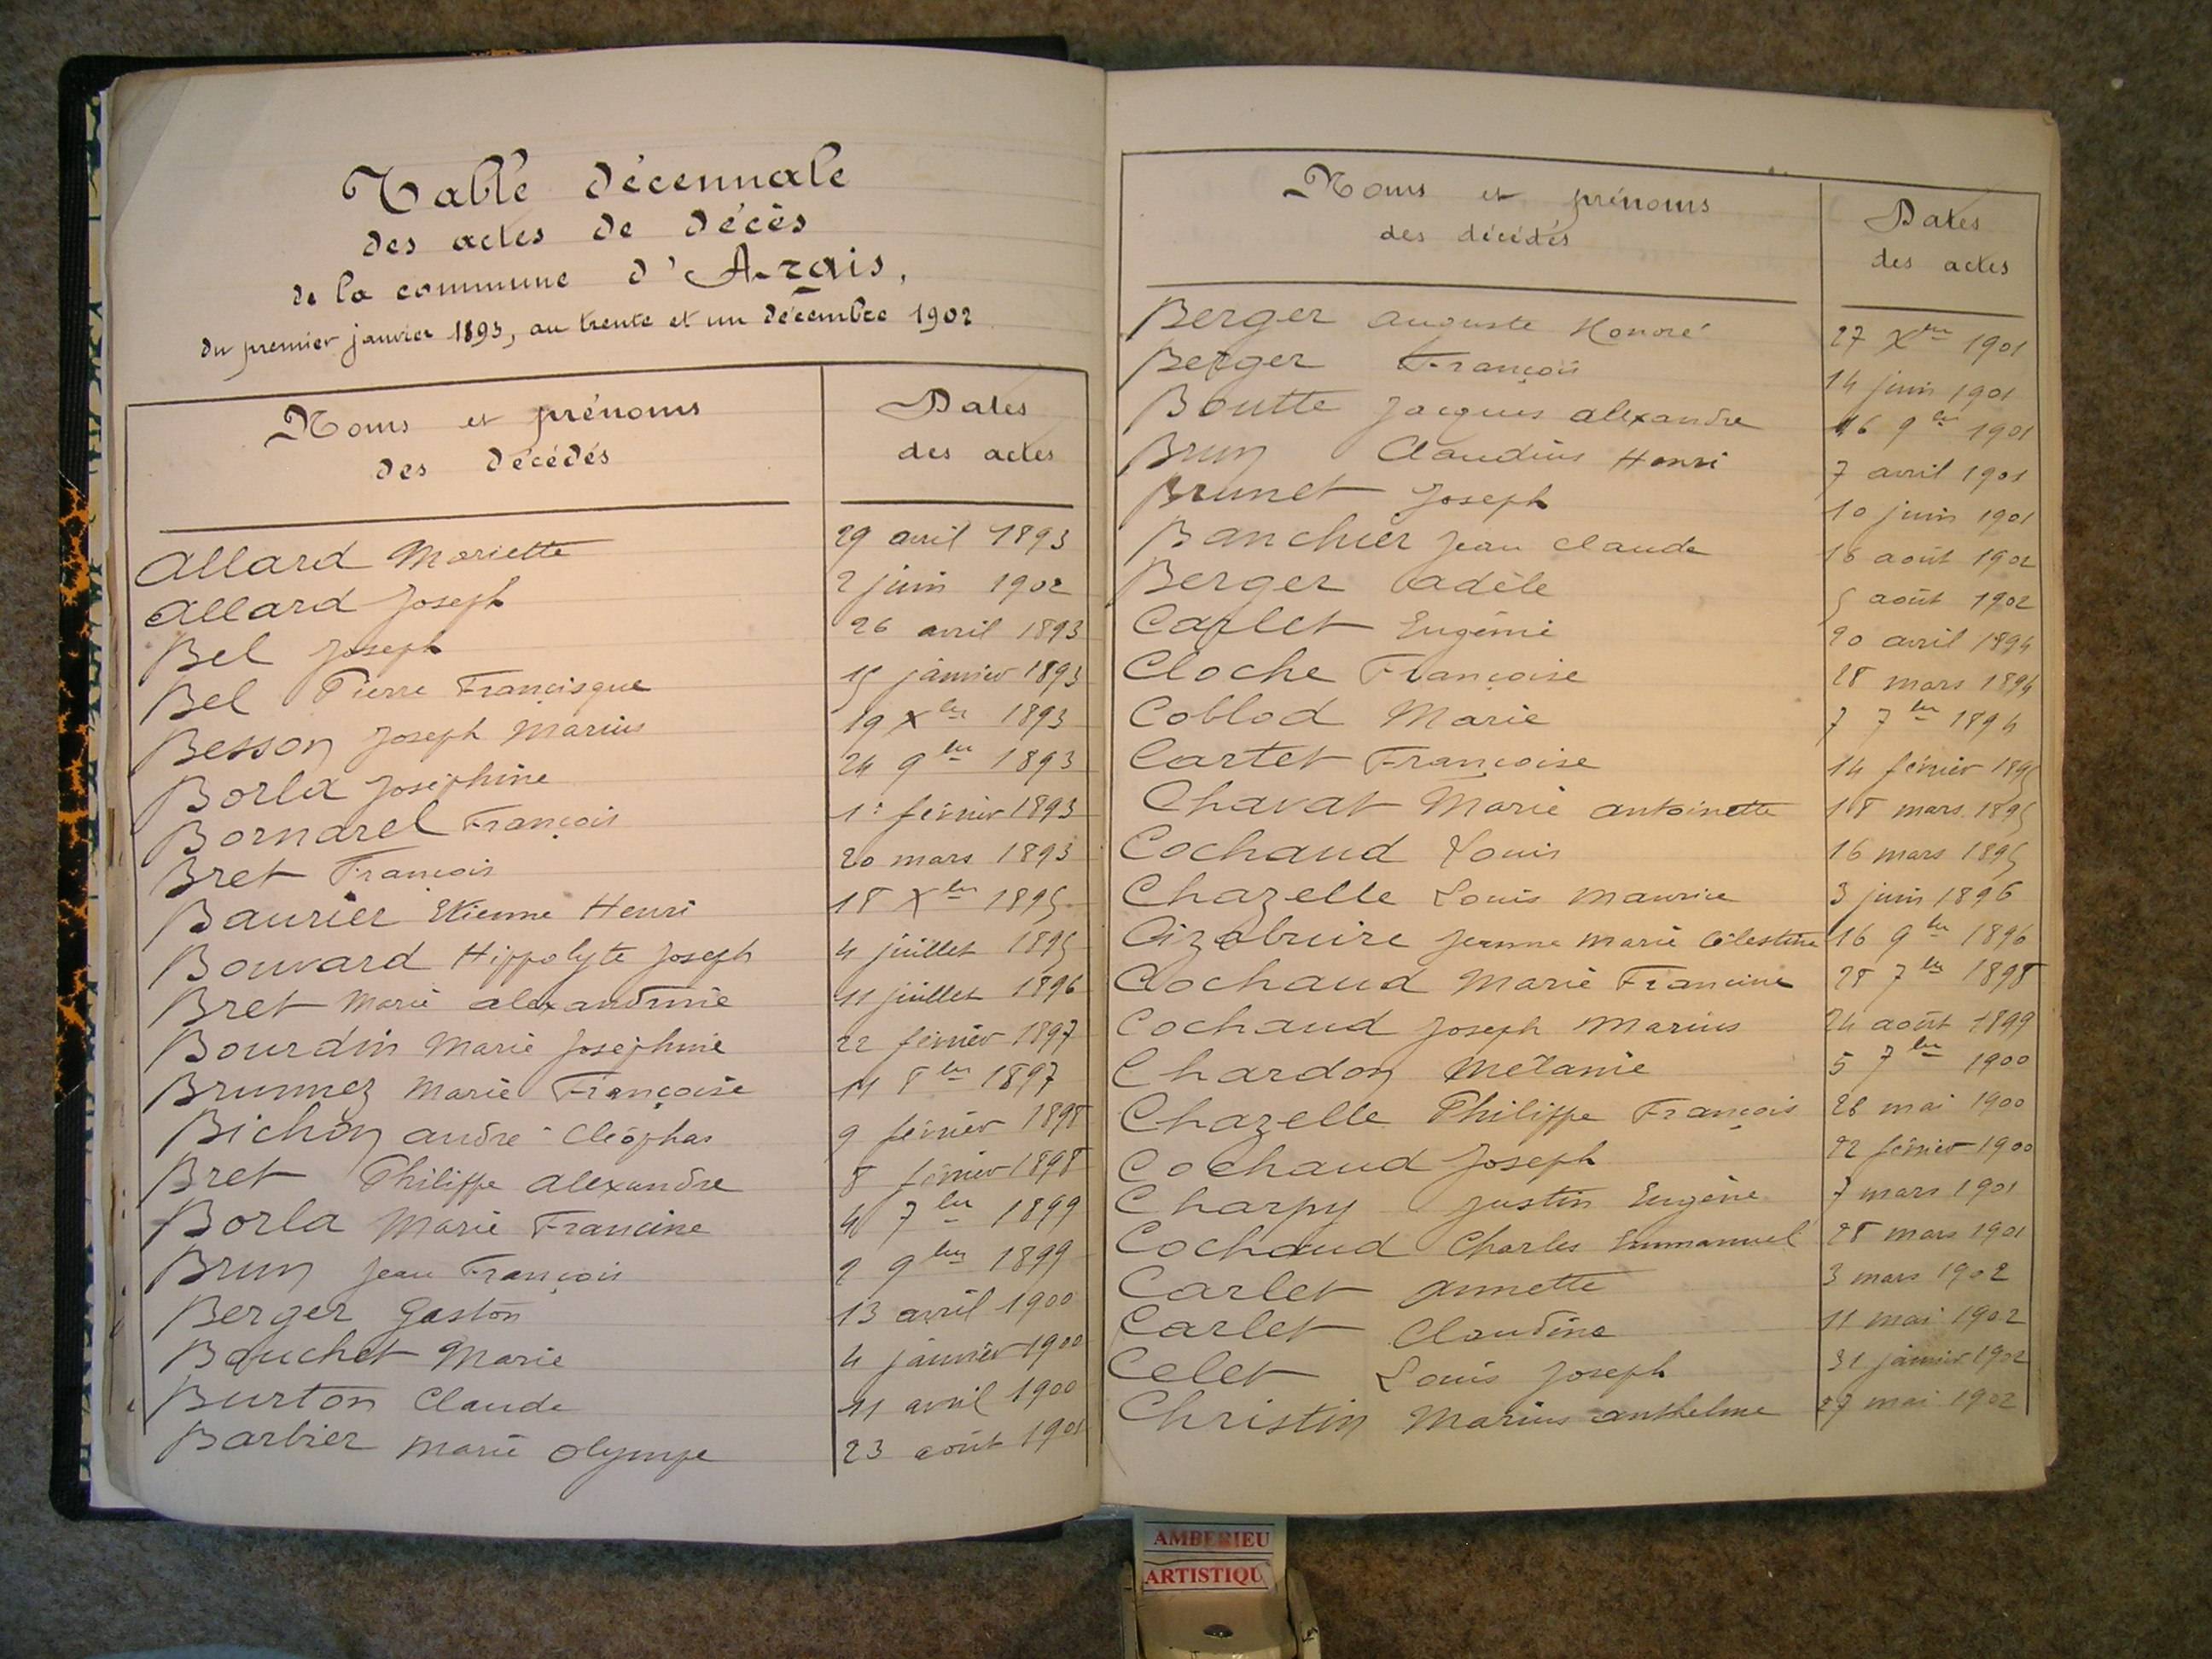 Table décennale
des actes de décès
de la commune d'Arais,
du premier janvier 1893, au trente et un décembre 1902
Noms et prénoms
des décédés
Dates
des actes
Allard Mariette 29 avril 1893
Allard Joseph 2 juin 1902
Bel Joseph 26 avril 1893
Bel Pierre Francisque 15 janvier 1893
Besson Joseph Marius 19 Xbre 1893
Borla Joséphine 24 9bre 1893
Bornarel François 1er février 1893
Bret François 20 mars 1893
Baurier Etienne Henri 18 Xbre 1895
Bouvard Hippolyte Joseph 4 juillet 1895
Bret Marie alexandrine 11 juillet 1896
Bourdin Marie Joséphine 22 février 1897
Brunnez Marie Françoise 11 8bre 1897
Bichon andré Cléophas 9 février 1898
Bret Philippe alexandre 8 février 1898
Borla Marie Francine 4 7bre 1899
Brun Jean François 2 9bre 1899
Berger Gaston 13 avril 1900
Bouchet Marie 4 janvier 1900
Burton Claude 11 avril 1900
Barbier Marie Olympe 23 août 1901
Noms et prénoms
des décédés
Dates
des actes
Berger auguste Honoré 27 Xbre 1901
Berger François 14 juin 1901
Boutte Jacques alexandre 16 9bre 1901
Brun Claudius Henri 7 avril 1901
Brunet Joseph 10 juin 1901
Banchier Jean Claude 16 août 1902
Berger adèle 5 août 1902
Carlet Eugénie 20 avril 1894
Cloche Françoise 28 mars 1894
Coblod Marie 7 7bre 1894
Cartet Françoise 14 février 1895
Chavat Marie antoinette 18 mars 1895
Cochaud Louis 16 mars 1895
Chazelle Louis Maurice 3 juin 1896
Cizabuire Jeanne Marie Célestine 16 9bre 1896
Cochaud Marie Francine 28 7bre 1898
Cochaud Joseph Marius 24 août 1899
Chardon Mélanie 5 7bre 1900
Chazelle Philippe François 28 mai 1900
Cochaud Joseph 22 février 1900
Charpy Justin Eugène 7 mars 1901
Cochaud Charles Emmanuel 28 mars 1901
Carlet annette 3 mars 1902
Carlet Claudine 11 mai 1902
Celet Louis Joseph 31 janvier 1902
Christin Marius anthelme 27 mai 1902
AMBERIEU
ARTISTIQU